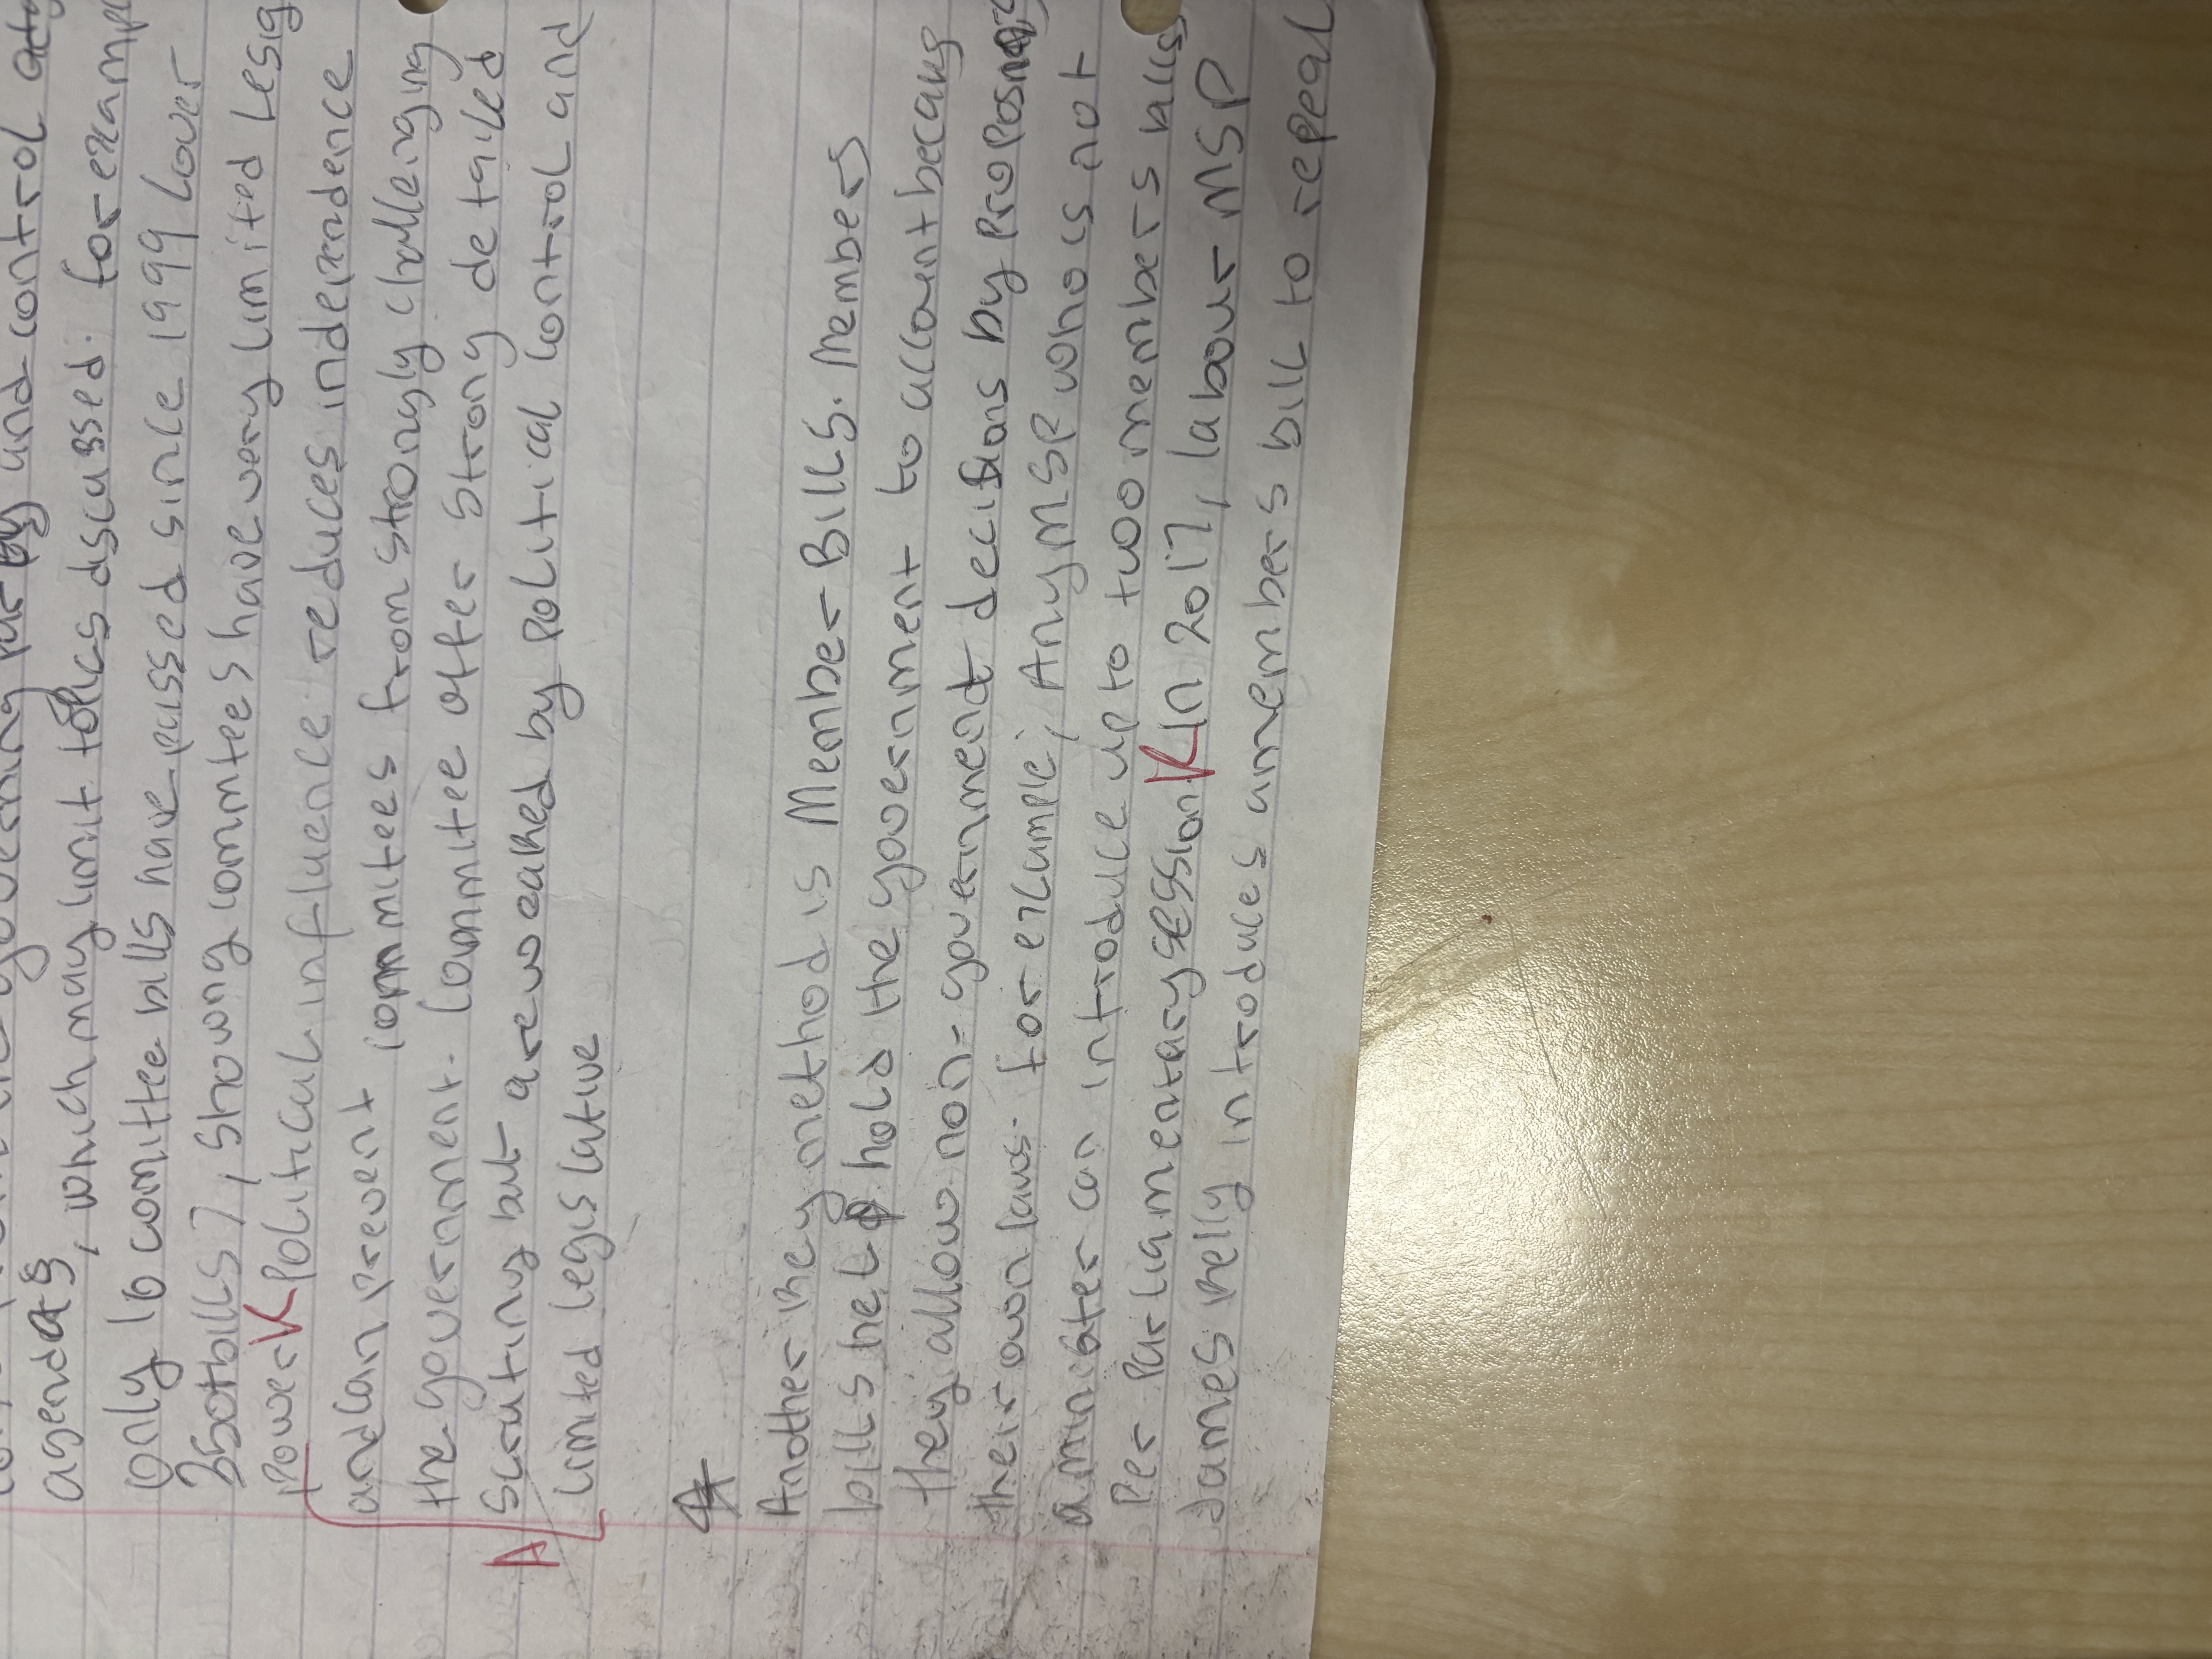 governing party and control
agendas, which may limit topics discussed. for examp
only 16 comittee bills have passed since 1999 (over
350 bills), showing commtees have very limited legis
power K Political influence reduces independence
and can prevent commitees from strongly challenging
the government. Commitee offer strong detailed
scrutiny but are weaked by political control and
A
limited legislative
Another key method is Member Bills. Members
bills help hold the government to account becaus
they allow non-government decisions by proposing
their own laws. for example, Any MSP who is not
a minister can introduce up to two members bills
Per Parliamentary session K In 2017, labour MSP
James Kelly introduces a members bill to repeal